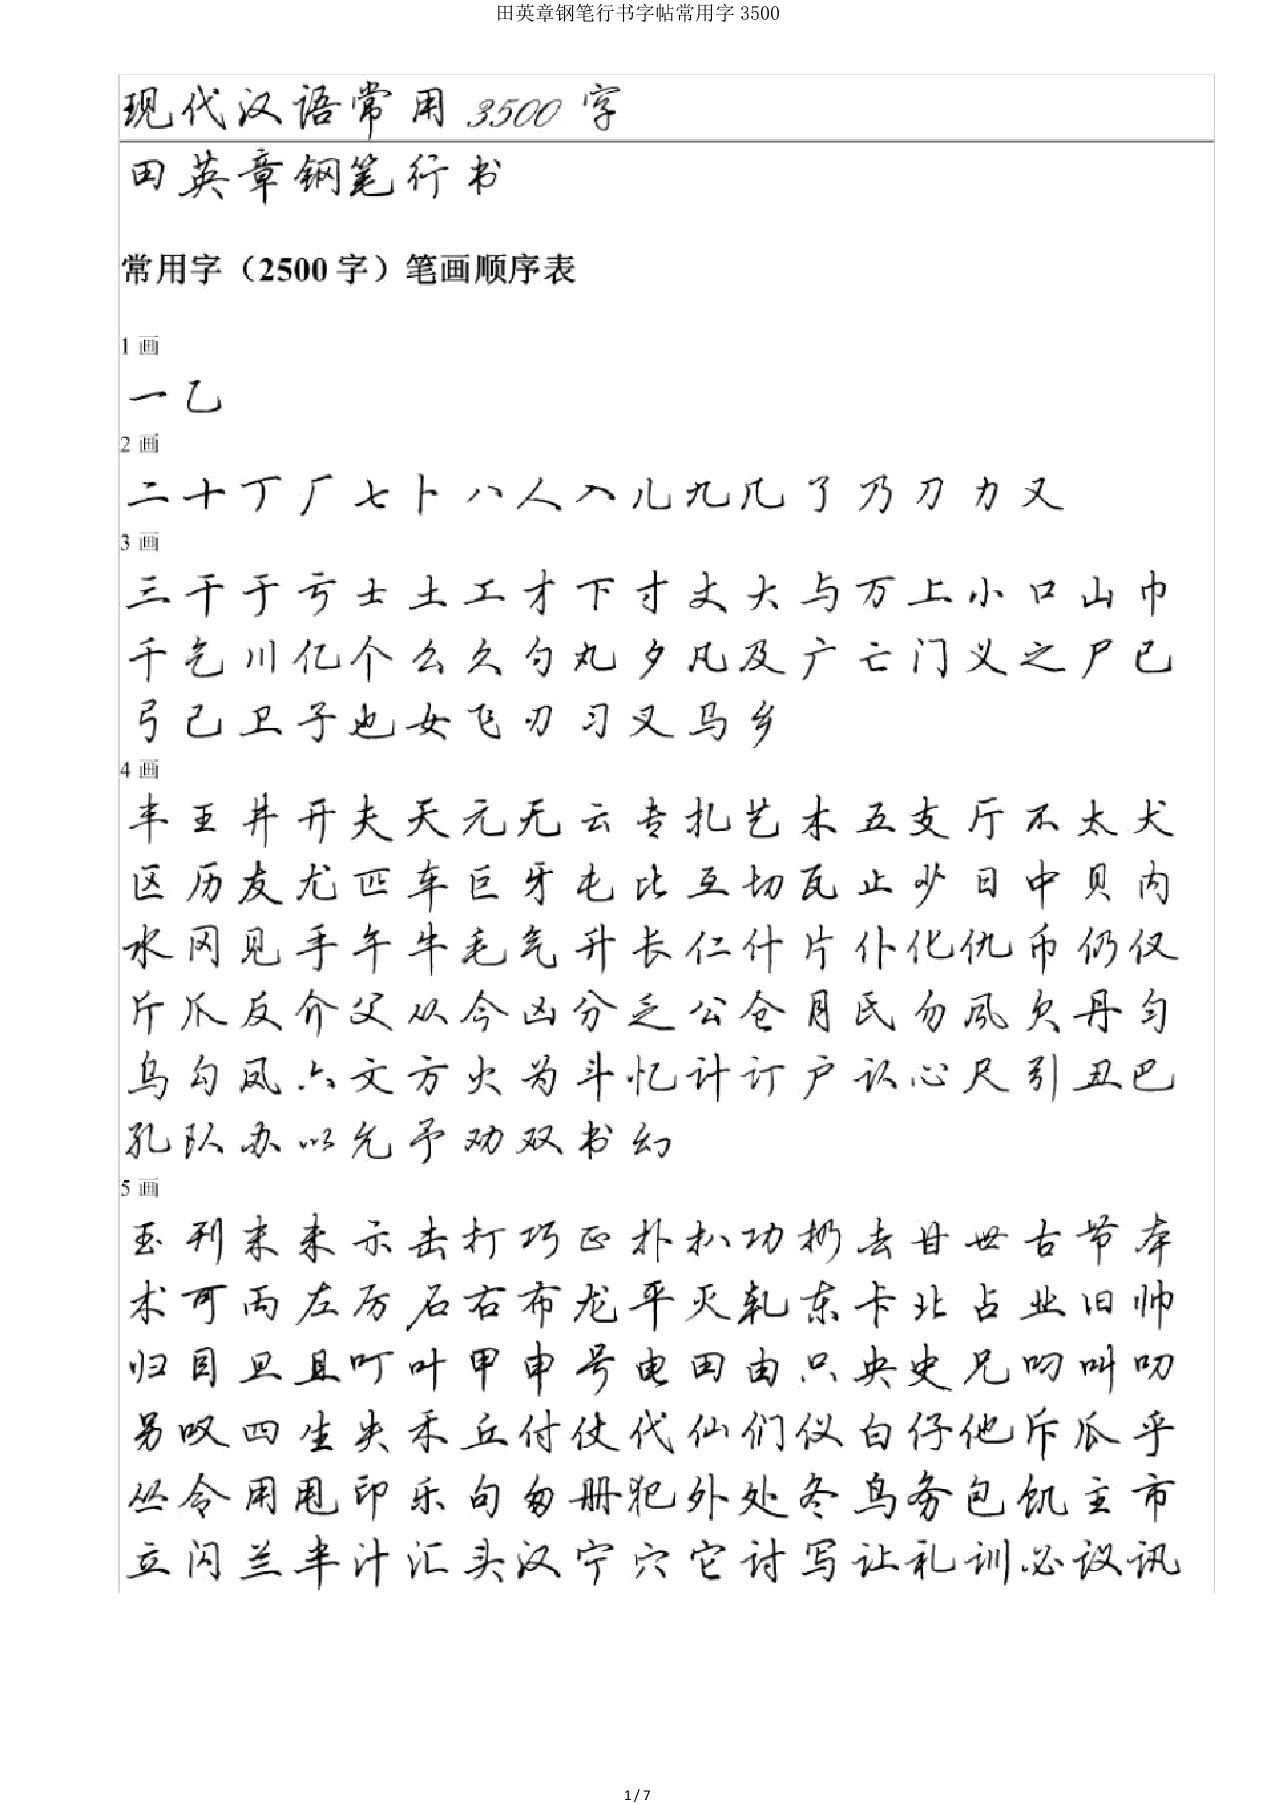 田英章钢笔行书字帖常用字 3500
现代汉语常用 3500 字
田英章钢笔行书
常用字（2500 字）笔画顺序表
1 画
一乙
2 画
二十丁厂七卜八人入儿九几了乃刀力又
3 画
三干于亏士土工才下寸丈大与万上小口山巾
千乞川亿个么久勺丸夕凡及广亡门义之尸已
弓己卫子也女飞刃习叉马乡
4 画
丰王井开夫天元无云专扎艺木五支厅不太犬
区历友尤匹车巨牙屯比互切瓦止少日中贝内
水冈见手午牛毛气升长仁什片仆化仇币仍仅
斤爪反介父从今凶分乏公仓月氏勿风欠丹匀
乌勾凤六文方火为斗忆计订户认心尺引丑巴
孔队办以允予劝双书幻
5 画
玉刊末未示击打巧正扑扒功扔去甘世古节本
术可丙左厉石右布龙平灭轧东卡北占业旧帅
归目旦且叮叶甲申号电田由只央史兄叼叫叨
另叹四生失禾丘付仗代仙们仪白仔他斥瓜乎
丛令用甩印乐句匆册犯外处冬鸟务包饥主市
立闪兰半汁汇头汉宁穴它讨写让礼训必议讯
1 / 7